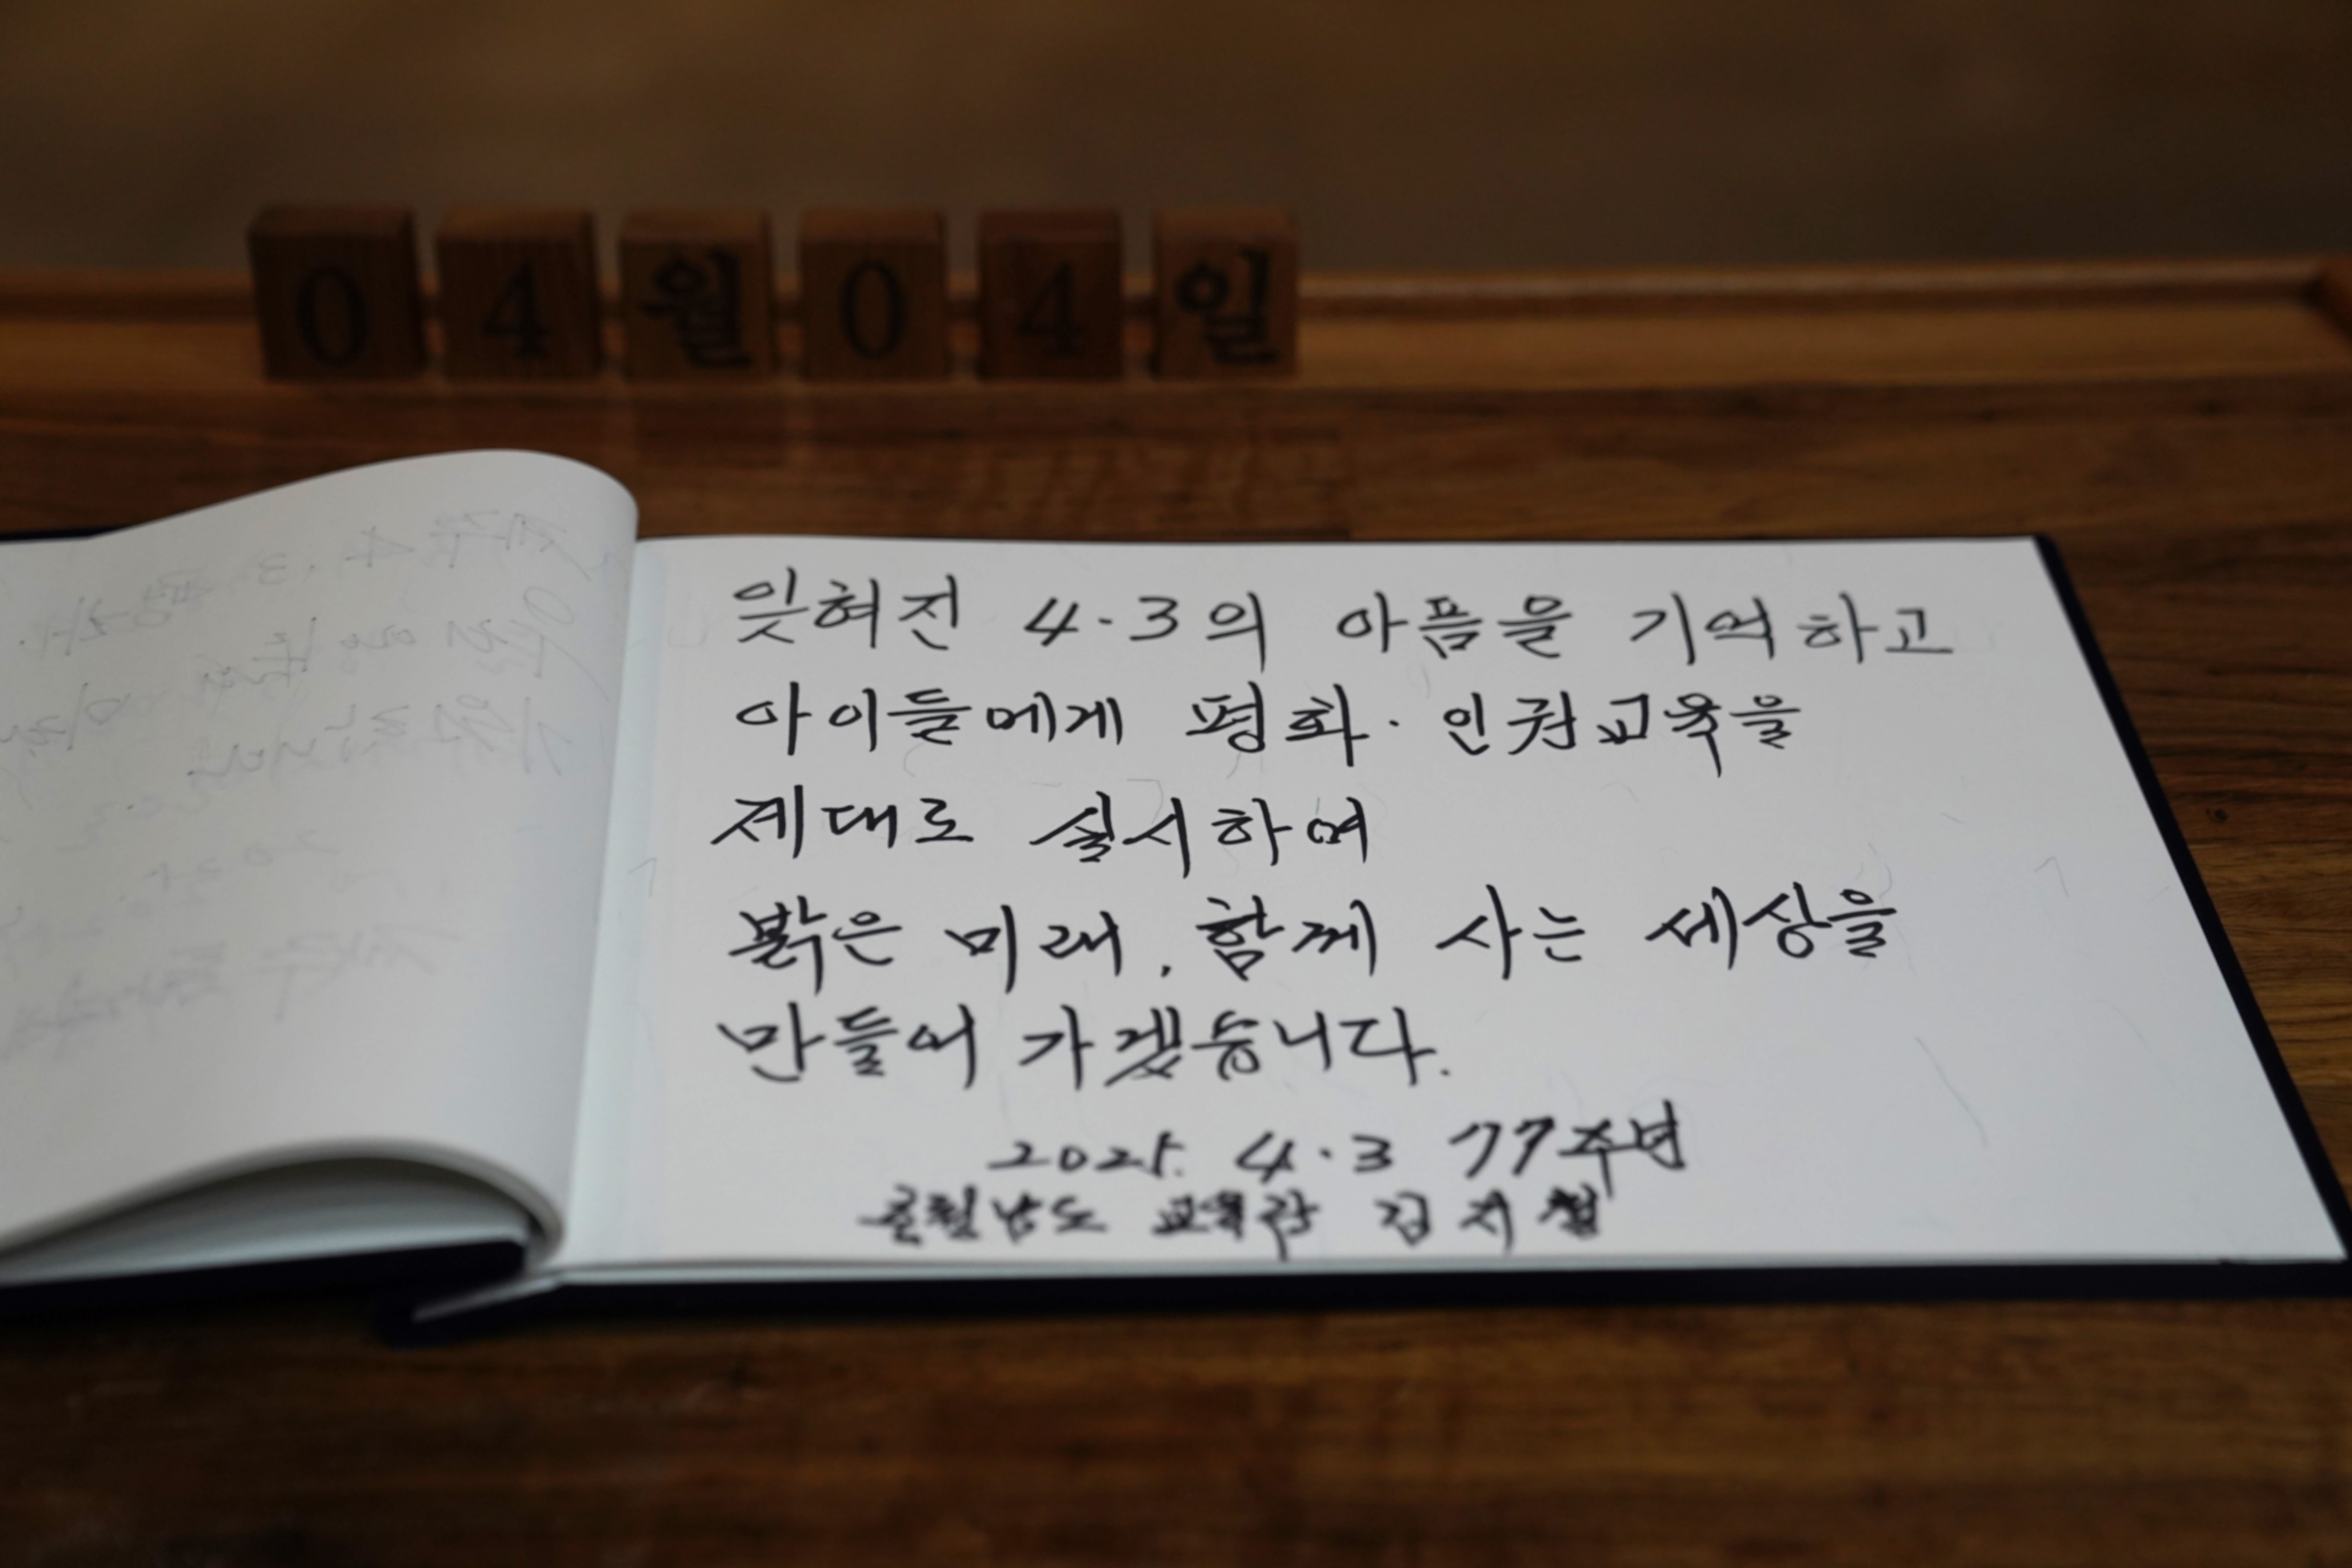 04월04일
잊혀진 4·3의 아픔을 기억하고
아이들에게 평화·인권교육을
제대로 실시하여
밝은 미래, 함께 사는 세상을
만들어 가겠습니다.
2025. 4·3 77주년
충청남도 교육감 김지철